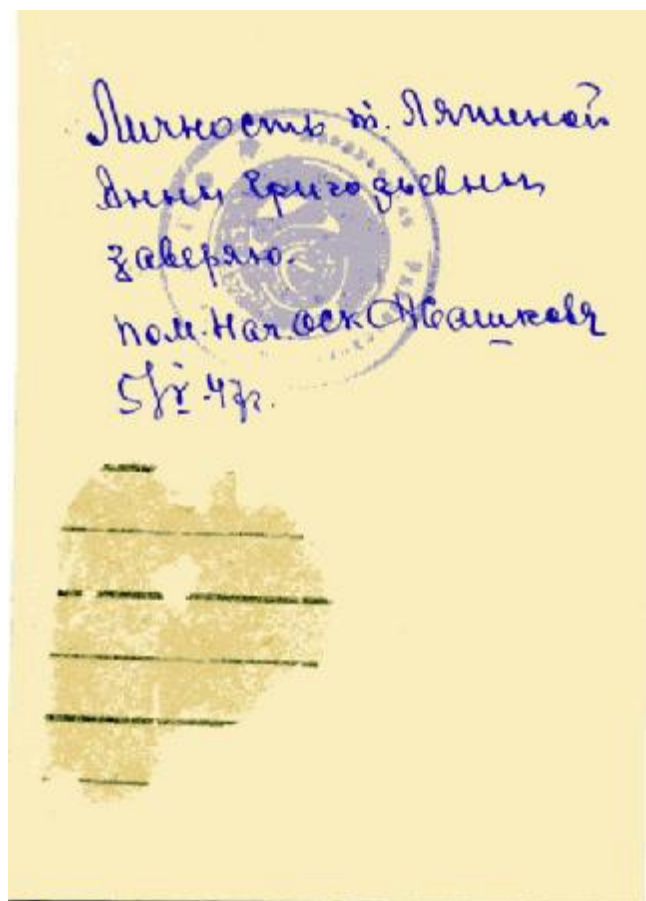 Личность т. Ляпиной
Анны Григорьевны
заверяю.
пом. нач. ОСК
5/V-47г.